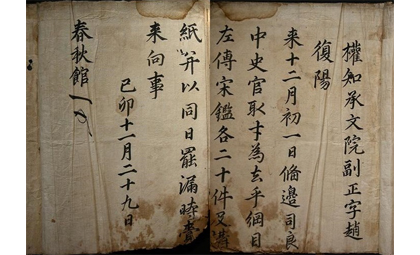 權知承文院副正字趙
復陽
来十二月初一日備邊司良
中史官取才為去乎綱目
左傳宋鑑各二十件及
紙幷以同日罷漏時
来向事
己卯十一月二十九日
春秋館